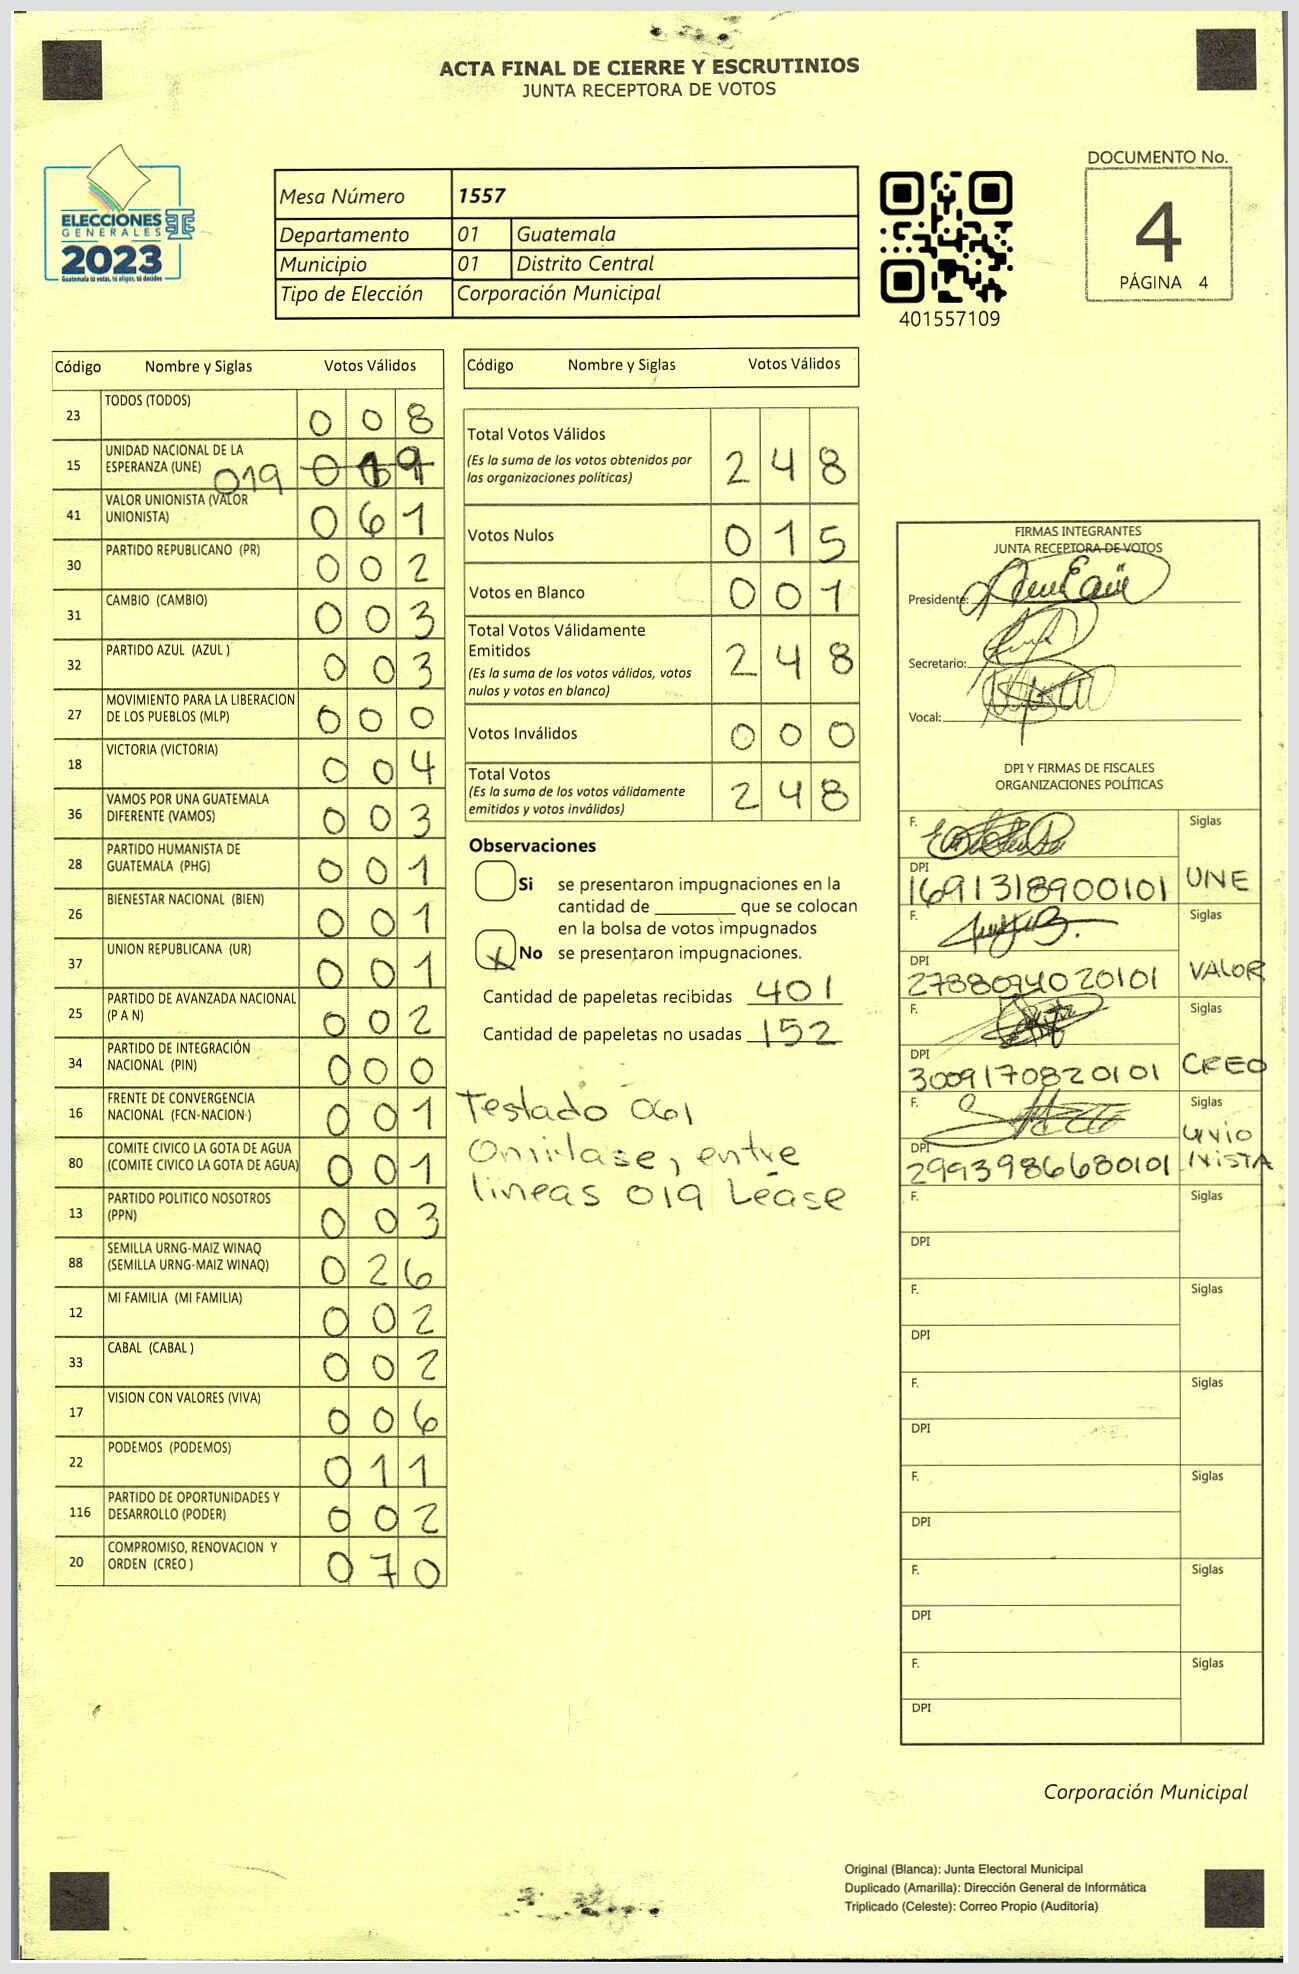 ACTA FINAL DE CIERRE Y ESCRUTINIOS
JUNTA RECEPTORA DE VOTOS
ELECCIONES
GENERALES
2023
Guatemala tú votas, tú eliges, tú decides
Mesa Número 1557
Departamento 01 Guatemala
Municipio 01 Distrito Central
Tipo de Elección Corporación Municipal
401557109
DOCUMENTO No.
4
PÁGINA 4
Código Nombre y Siglas Votos Válidos
23 TODOS (TODOS) 0 0 8
15 UNIDAD NACIONAL DE LA
ESPERANZA (UNE) 019
41 VALOR UNIONISTA (VALOR
UNIONISTA) 0 6 1
30 PARTIDO REPUBLICANO (PR) 0 0 2
31 CAMBIO (CAMBIO) 0 0 3
32 PARTIDO AZUL (AZUL ) 0 0 3
27 MOVIMIENTO PARA LA LIBERACION
DE LOS PUEBLOS (MLP) 0 0 0
18 VICTORIA (VICTORIA) 0 0 4
36 VAMOS POR UNA GUATEMALA
DIFERENTE (VAMOS) 0 0 3
28 PARTIDO HUMANISTA DE
GUATEMALA (PHG) 0 0 1
26 BIENESTAR NACIONAL (BIEN) 0 0 1
37 UNION REPUBLICANA (UR) 0 0 1
25 PARTIDO DE AVANZADA NACIONAL
(P A N) 0 0 2
34 PARTIDO DE INTEGRACIÓN
NACIONAL (PIN) 0 0 0
16 FRENTE DE CONVERGENCIA
NACIONAL (FCN-NACION ) 0 0 1
80 COMITE CIVICO LA GOTA DE AGUA
(COMITE CIVICO LA GOTA DE AGUA) 0 0 1
13 PARTIDO POLITICO NOSOTROS
(PPN) 0 0 3
88 SEMILLA URNG-MAIZ WINAQ
(SEMILLA URNG-MAIZ WINAQ) 0 2 6
12 MI FAMILIA (MI FAMILIA) 0 0 2
33 CABAL (CABAL ) 0 0 2
17 VISION CON VALORES (VIVA) 0 0 6
22 PODEMOS (PODEMOS) 0 1 1
116 PARTIDO DE OPORTUNIDADES Y
DESARROLLO (PODER) 0 0 2
20 COMPROMISO, RENOVACION Y
ORDEN (CREO ) 0 7 0
Código Nombre y Siglas Votos Válidos
Total Votos Válidos 2 4 8
(Es la suma de los votos obtenidos por
las organizaciones políticas)
Votos Nulos 0 1 5
Votos en Blanco 0 0 1
Total Votos Válidamente
Emitidos 2 4 8
(Es la suma de los votos válidos, votos
nulos y votos en blanco)
Votos Inválidos 0 0 0
Total Votos 2 4 8
(Es la suma de los votos válidamente
emitidos y votos inválidos)
Observaciones
Si se presentaron impugnaciones en la
cantidad de ________ que se colocan
en la bolsa de votos impugnados
X No se presentaron impugnaciones.
Cantidad de papeletas recibidas 401
Cantidad de papeletas no usadas 152
Testado 061
Omitase, entre
lineas 019 Léase
FIRMAS INTEGRANTES
JUNTA RECEPTORA DE VOTOS
Presidente:
Secretario:
Vocal:
DPI Y FIRMAS DE FISCALES
ORGANIZACIONES POLÍTICAS
F. Siglas
DPI
1691318900101 UNE
F. Siglas
DPI
2788094020101 VALOR
F. Siglas
DPI
3009170820101 CREO
F. Siglas
DPI
2993986680101 UNIO
NISTA
F. Siglas
DPI
F. Siglas
DPI
F. Siglas
DPI
F. Siglas
DPI
F. Siglas
DPI
F. Siglas
DPI
Corporación Municipal
Original (Blanca): Junta Electoral Municipal
Duplicado (Amarilla): Dirección General de Informática
Triplicado (Celeste): Correo Propio (Auditoría)